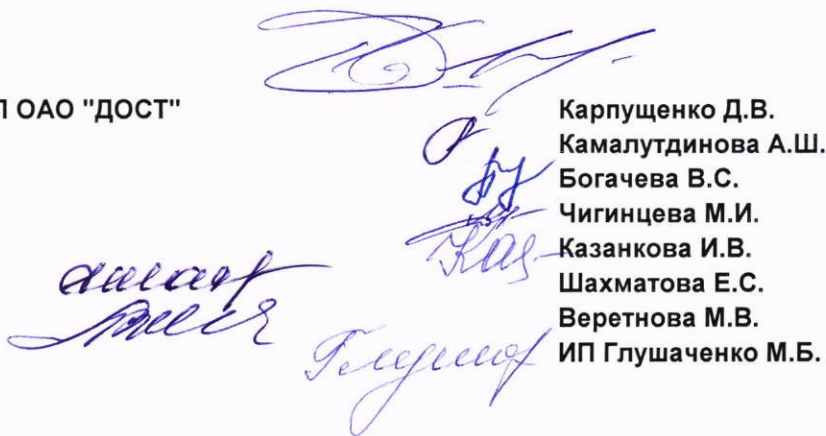 ОАО "ДОСТ"
Карпущенко Д.В.
Камалутдинова А.Ш.
Богачева В.С.
Чигинцева М.И.
Казанкова И.В.
Шахматова Е.С.
Веретнова М.В.
ИП Глушаченко М.Б.